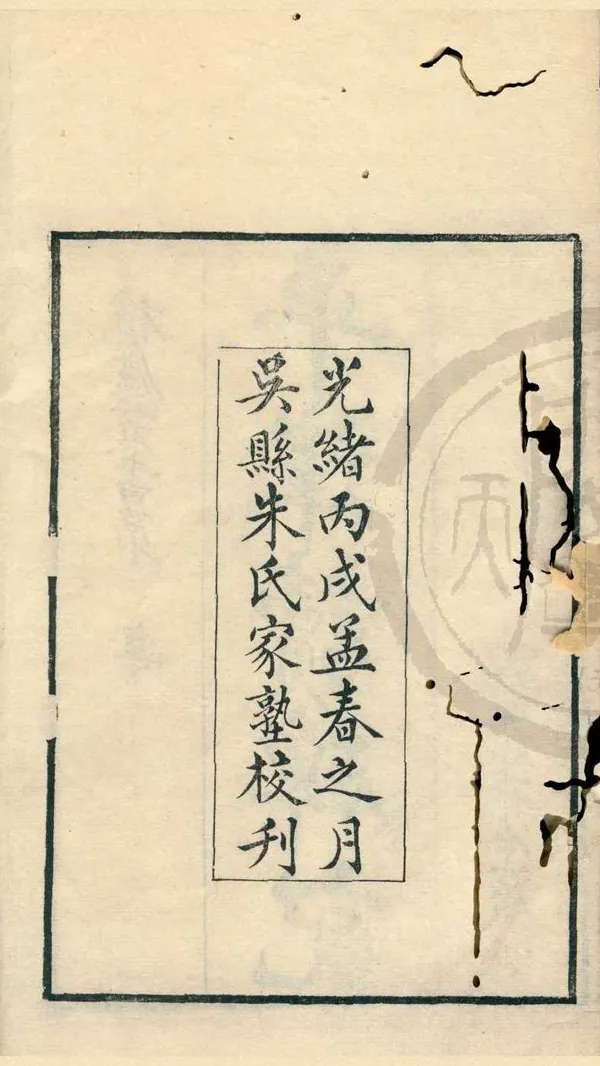 光緒丙戌孟春之月
吳縣朱氏家塾校刋